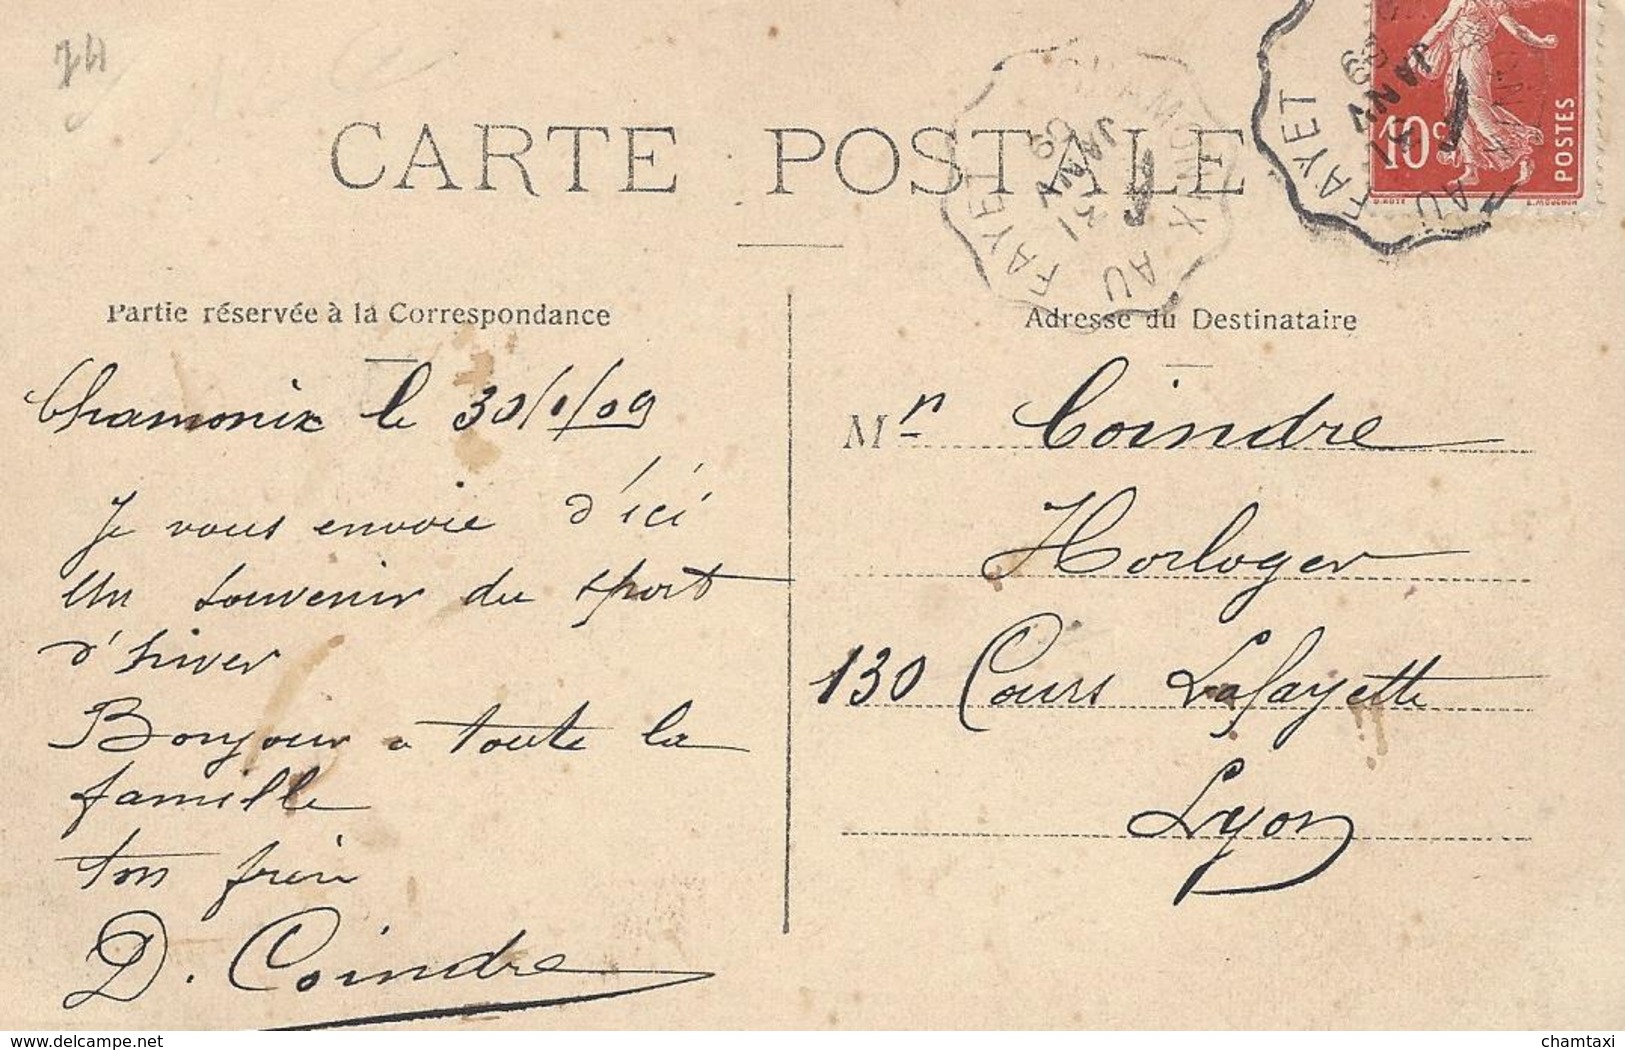 74
CARTE POSTALE
CHAMONIX AU FAYET
31
JANV
09
CHAMONIX AU FAYET
31
JANV
09
10c
POSTES
O.ROTY
E.MOUCHON
Partie réservée à la Correspondance
Chamonix le 30/1/09
Je vous envoie d'ici
un souvenir du sport
d'hiver
Bonjour a toute la
famille
ton frère
D. Coindre
Adresse du Destinataire
Mr Coindre
Horloger
130 Cours Lafayette
Lyon
www.delcampe.net
chamtaxi